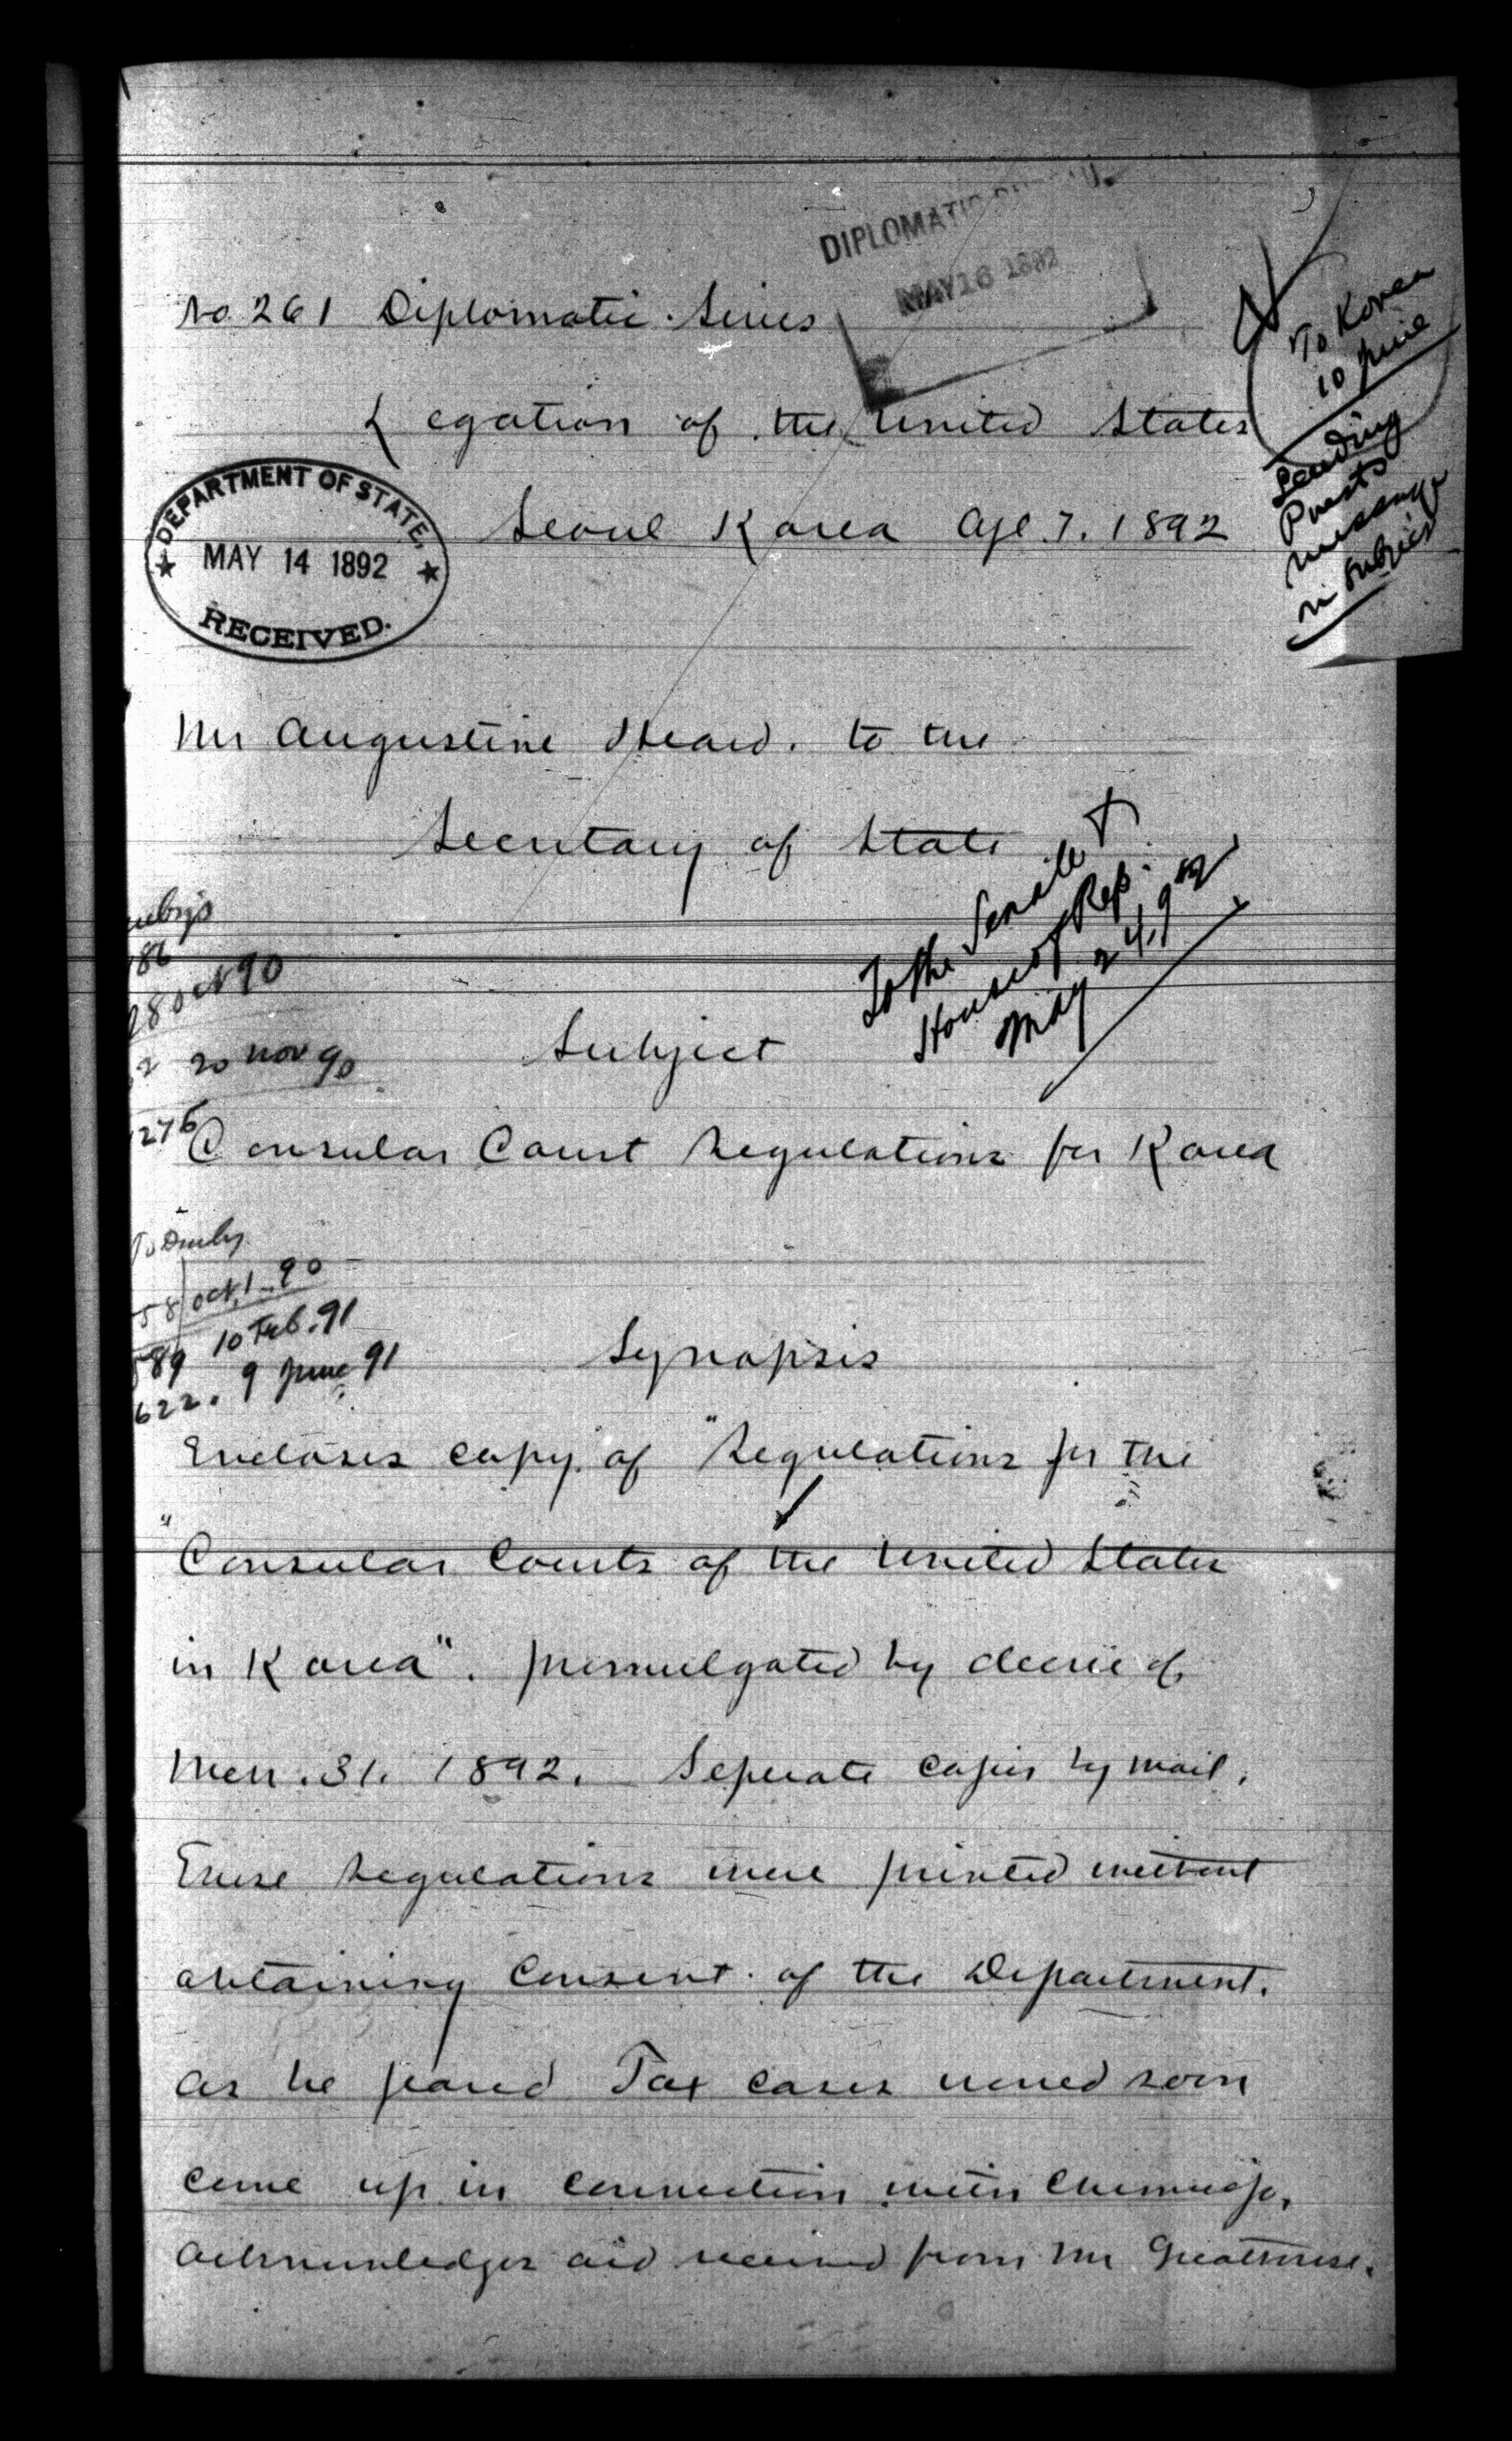 DIPLOMATIC
MAY 16 1892
No 261 Diplomatic Series
To Korea
10 June
Sending
Prest's
message
in subject
Legation of the United States
Seoul Korea Apl 7. 1892
DEPARTMENT OF STATE,
MAY 14 1892
RECEIVED.
Mr Augustine Heard. to the
Secretary of State
To the Senate &
House of Rep.
May 24, 92
86
28 Oct 90
2 20 Nov 90
276
Subject
Consular Court Regulations for Korea
To Denby
58 Oct. 1 - 90
589 10 Feb. 91
622. 9 June 91
Synopsis
Encloses copy of "Regulations for the
"Consular Courts of the United States
in Korea". promulgated by decree of
Mch. 31. 1892. Seperate copies by mail.
These Regulations were printed without
obtaining consent of the Department.
as he feared Tax cases would soon
come up in connection with Chemulpo,
Acknowledges aid received from Mr Greathouse.